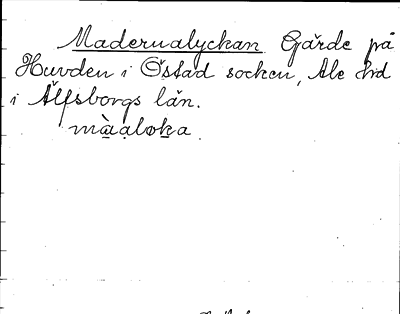 Madernalyckan Gärde på
Huvden i Östad socken, Ale hd
i Älfsborgs län.